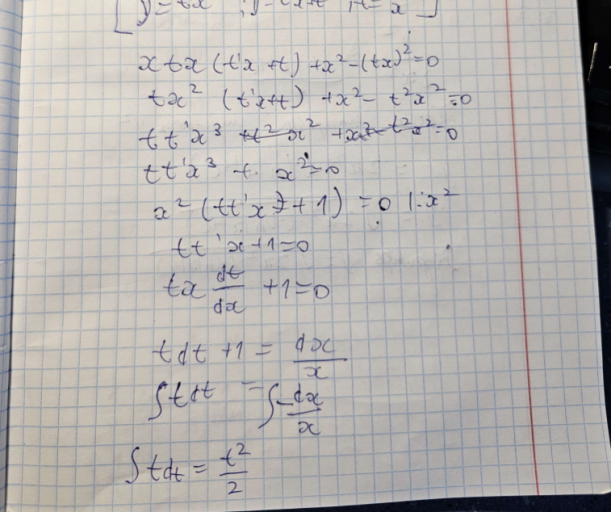 x t x (t'x + t) + x² - (tx)² = 0
t x² (t'x + t) + x² - t²x² = 0
t t'x³ + t²x² + x² - t²x² = 0
t t'x³ + x² = 0
x² (t t'x + 1) = 0 | : x²
t t'x + 1 = 0
t x dt/dx + 1 = 0
t dt + 1 = dx/x
∫ t dt = ∫ -dx/x
∫ t dt = t²/2